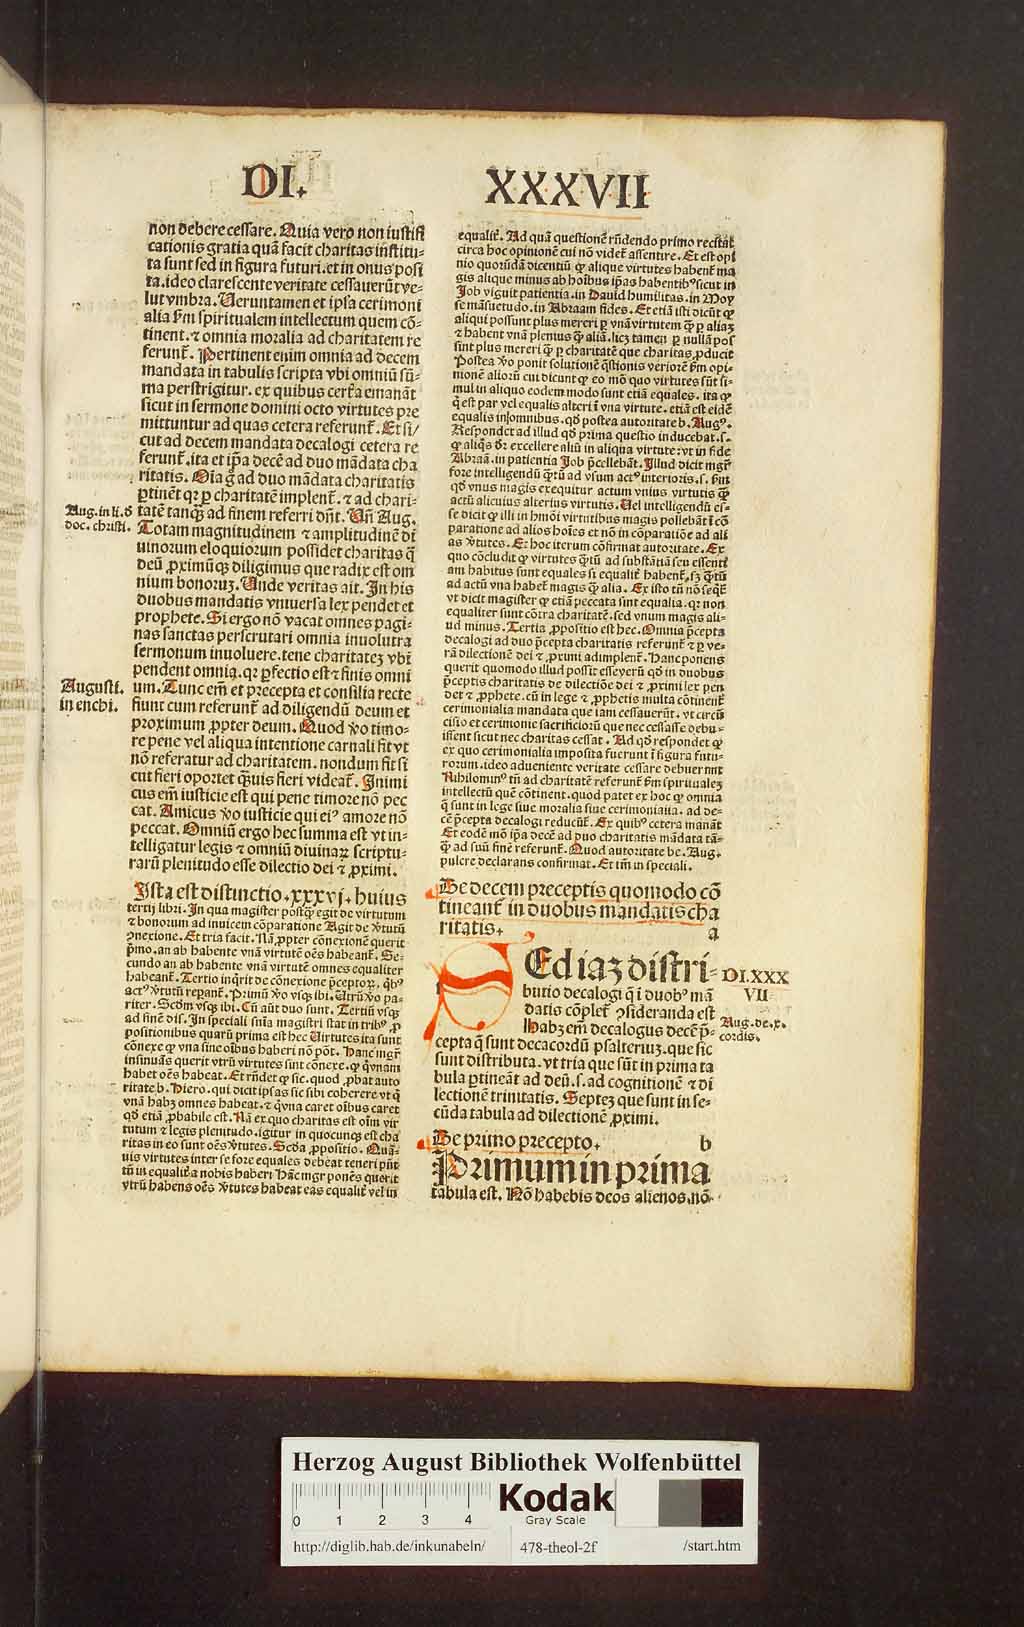 DI. XXXVII
non debere cessare. Quia vero non iustifi
cationis gratia quā facit charitas institu-
ta sunt sed in figura futuri. et in onus posi
ta. ideo clarescente veritate cessauerūt ve-
lut vmbra. Ueruntamen et ipsa cerimoni
alia ẜm spiritualem intellectum quem cō-
tinent. ⁊ omnia moralia ad charitatem re
ferunt̄. Pertinent enim omnia ad decem
mandata in tabulis scripta vbi omniū sū-
ma perstrigitur. ex quibus cert̄a emanāt
sicut in sermone domini octo virtutes pre
mittuntur ad quas cetera referunt̄. Et si/
cut ad decem mandata decalogi cetera re
ferunt̄. ita et ip̄a decē ad duo mādata cha
ritatis. Oīa g̊ ad duo mādata charitatis
ꝑtinēt qꝛ ꝑ charitatē implent̄. ⁊ ad chari-
Aug. in li. ð
doc. christi.
tatē tanqȝ ad finem referri dn̄t. Un̄ Aug.
Totam magnitudinem ⁊ amplitudinē di
uinorum eloquiorum possidet charitas q̄
deū ꝓximūqȝ diligimus que radix est om
nium bonoruȝ. Unde veritas ait. In his
duobus mandatis vniuersa lex pendet et
prophete. Si ergo nō vacat omnes pagi-
nas sanctas perscrutari omnia inuolutra
sermonum inuoluere. tene charitateȝ vbi
pendent omnia. qꝛ ꝑfectio est ⁊ finis omni
Augusti.
in enchi.
um. Tunc em̄ et precepta et consilia recte
fiunt cum referunt̄ ad diligendū deum et
proximum ꝓpter deum. Quod v̊o timo-
re pene vel aliqua intentione carnali fit vt
nō referatur ad charitatem. nondum fit si
cut fieri oportet q̄uis fieri videat̄. Inimi
cus em̄ iusticie est qui pene timore nō pec
cat. Amicus v̊o iusticie qui eiꝰ amore nō
peccat. Omniū ergo hec summa est vt in-
telligatur legis ⁊ omniū diuinaꝝ scriptu-
rarū plenitudo esse dilectio dei ⁊ ꝓximi.
Ista est distinctio .xxxvj. huius
tertij libri. In qua magister postq̄ egit de virtutum
⁊ bonorum ad inuicem cōparatione Agit de v̊tutū
ꝯnexione. Et tria facit. Nā ꝓpter cōnexionē querit
p̄mo. an ab habente vnā virtutē oēs habeant̄. Se-
cundo an ab habente vnā virtutē omnes equaliter
habeant̄. Tertio inq̄rit de cōnexione p̄ceptoꝝ. q̄bꝰ
actꝰ v̊tutū repant̄. Primū v̊o vsqȝ ibi. Utrū v̊o pa-
riter. Scd̄m vsqȝ ibi. Cū aūt duo sunt. Tertiū vsqȝ
ad finē dis. In speciali sn̄ia magistri stat in tribꝰ ꝓ
positionibus quarū prima est hec Uirtutes ita sunt
cōnexe ꝙ vna sine oībus haberi nō pōt. Hanc mgr̄
insinuās querit vtrū virtutes sint cōnexe. ꝙ q̄ vnam
habet oēs habeat. Et rn̄det ꝙ sic. quod ꝓbat auto
ritate b. Hiero. qui dicit ipsas sic sibi coherere vt q̄
vnā habȝ omnes habeat. ⁊ q̄ vna caret oībus caret
qd̄ etiā ꝓbabile est. Nā ex quo charitas est oīm vir
tutum ⁊ legis plenitudo. igitur in quocunqȝ est cha
ritas in eo sunt oēs v̊tutes. Scd̄a ꝓpositio. Quā-
uis virtutes inter se fore equales debeāt teneri pn̄t
tn̄ inequalit̄ a nobis haberi. Hāc mgr̄ ponēs querit
vtrū habens oēs v̊tutes habeat eas equalit̄ vel in
equalit̄. Ad quā questionē rn̄dendo primo recitat
circa hoc opinionē cui nō videt̄ assentire. Et est opi
nio quorūdā dicentiū ꝙ alique virtutes habent̄ ma
gis alique minus ab hoībus ip̄as habentibꝰ sicut in
Job viguit patientia. in Dauid humilitas. in Moy
se māsuetudo. in Abraam fides. Et etiā isti dicūt ꝙ
aliqui possunt plus mereri ꝑ vnā virtutem q̄ ꝑ aliaȝ
⁊ habent vnā plenius q̄ aliā. licȝ tamen ꝑ nullā pos
sint plus mereri q̄ ꝑ charitatē que charitas ꝓducit
Postea v̊o ponit solutionē q̄stionis veriorē ẜm opi-
nionē alioꝛū cui dicunt ꝙ eo mō quo virtutes sūt si-
mul in aliquo eodem modo sunt etiā equales. ita ꝙ
q̄ est par vel equalis alteri ī vna virtute. etiā est eidē
equalis in omnibus. qd̄ postea autoritate b. Augꝰ.
Respondet ad illud qd̄ prima questio inducebat. s.
ꝙ aliq̄s dr̄ excellere aliū in aliqua virtute: vt in fide
Abraā. in patientia Job p̄cellebāt. Illud dicit mgr̄
fore intelligendū q̄tū ad vsum actꝰ interioris. s. ẜm
qd̄ vnus magis exequitur actum vnius virtutis q̄
actū alicuius alterius virtutis. Uel intelligendū es-
se dicit ꝙ illi in hmōi virtutibus magis pollebāt ī cō
paratione ad alios hoīes et nō in cōparatiōe ad ali
as v̊tutes. Et hoc iterum cōfirmat autoritate. Ex
quo cōcludit ꝙ virtutes q̄tū ad substātiā seu essenti
am habitus sunt equales si equalit̄ habent̄. sȝ q̄tū
ad actū vna habet̄ magis q̄ alia. Ex isto tn̄ nō seq̄t̄
vt dicit magister ꝙ etiā peccata sint equalia. qꝛ non
equaliter sunt cōtra charitatē. sed vnum magis ali-
ud minus. Tertia ꝓpositio est hec. Omnia p̄cepta
decalogi ad duo p̄cepta charitatis referunt̄ ⁊ ꝑ ve-
rā dilectionē dei ⁊ ꝓximi adimplent̄. Hanc ponens
querit quomodo illud possit esse verū qd̄ in duobus
p̄ceptis charitatis de dilectiōe dei ⁊ ꝓximi lex pen
det ⁊ ꝓphete. cū in lege ⁊ ꝓphetis multa cōtinent̄
cerimonialia mandata que iam cessauerūt. vt circū
cisio et cerimonie sacrificiorū que nec cessasse debu-
issent sicut nec charitas cessat. Ad qd̄ respondet ꝙ
ex quo cerimonialia imposita fuerunt ī figura futu-
rorum. ideo adueniente veritate cessare debuerunt
Nihilominꝰ tn̄ ad charitatē referunt̄ ẜm spiritualeȝ
intellectū quē cōtinent. quod patet ex hoc ꝙ omnia
q̄ sunt in lege siue moralia siue cerimonialia. ad de-
cē p̄cepta decalogi reducūt̄. Ex quibꝰ cetera manāt
Et eodē mō ip̄a decē ad duo charitatis mādata tā-
q̄ ad suū finē referunt̄. Quod autoritate be. Aug.
pulcre declarans confirmat. Et tm̄ in speciali.
De decem preceptis quomodo cō
tineant̄ in duobus mandatis cha
ritatis. a
Sed iaȝ distri-
butio decalogi q̄ ī duobꝰ mā
datis cōplet̄ ꝯsideranda est
DI. XXX
VII
Habȝ em̄ decalogus decē p̄-
Aug. de. x.
cordis.
cepta q̄ sunt decacordū psalteriuȝ. que sic
sunt distributa. vt tria que sūt in prima ta
bula ꝑtineāt ad deū. s. ad cognitionē ⁊ di
lectionē trinitatis. Septeȝ que sunt in se-
cūda tabula ad dilectionē ꝓximi.
De primo precepto. b
Primum in prima
tabula est. Nō habebis deos alienos. nō
Herzog August Bibliothek Wolfenbüttel
0 1 2 3 4
Kodak
Gray Scale
http://diglib.hab.de/inkunabeln/ 478-theol-2f /start.htm